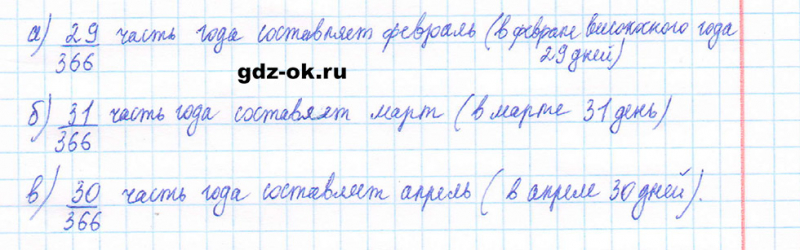 а) 29/366 часть года составляет февраль (в феврале високосного года
29 дней)
gdz-ok.ru
б) 31/366 часть года составяет март (в марте 31 день)
в) 30/366 часть года составляет апрель (в апреле 30 дней).